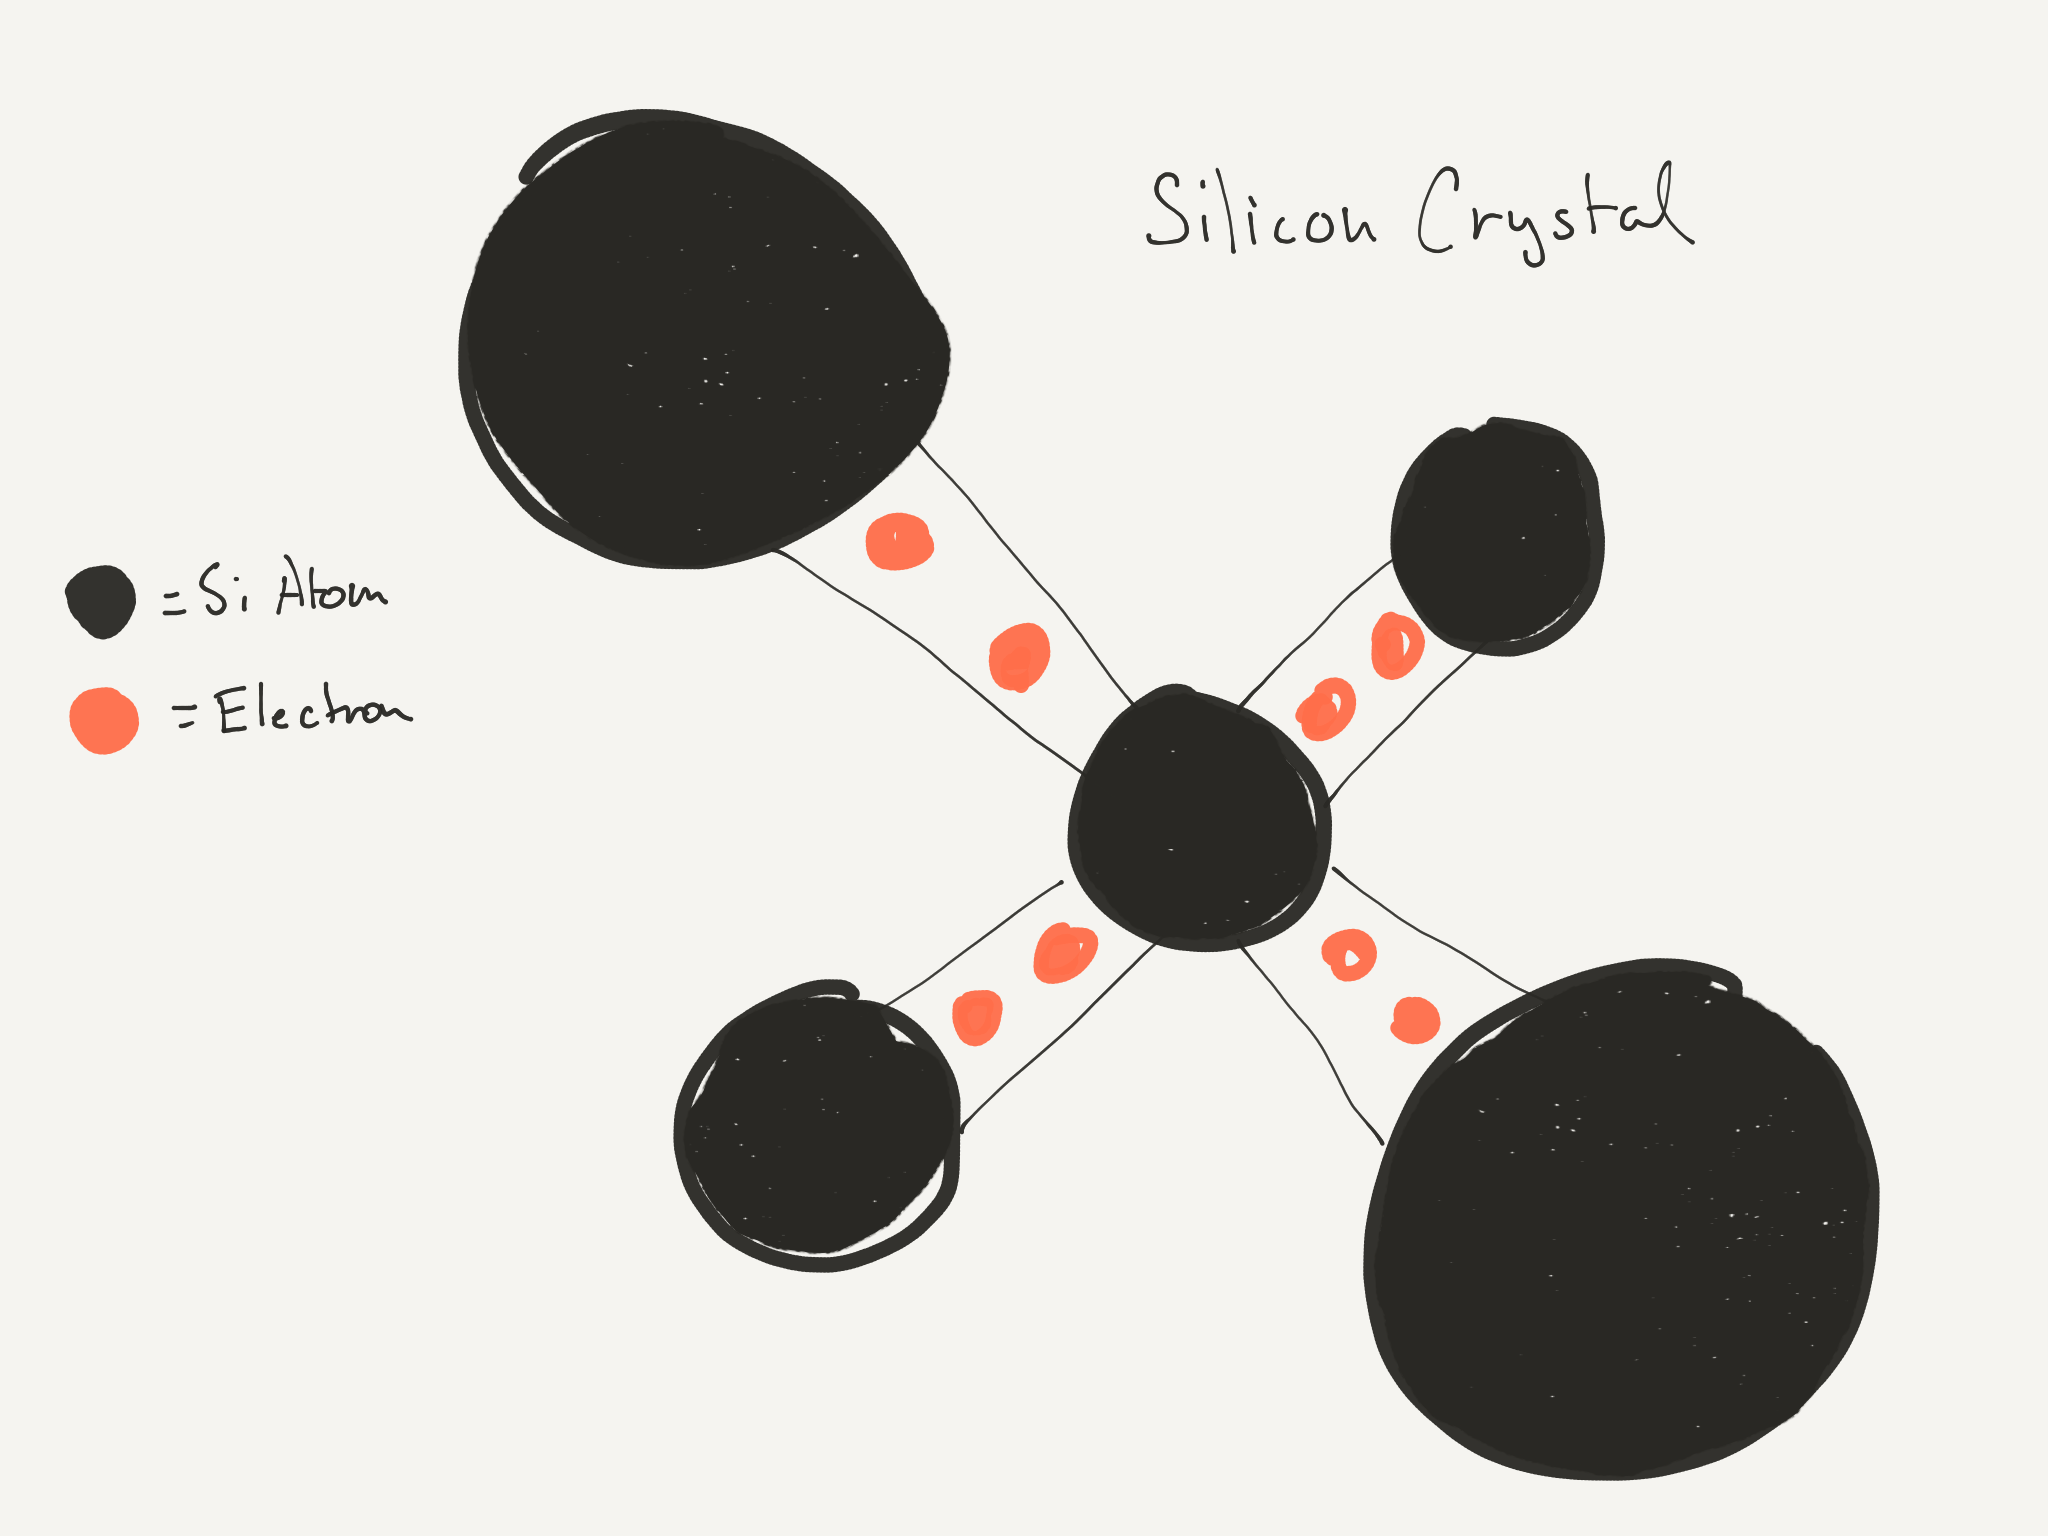 Silicon Crystal
= Si Atom
= Electron